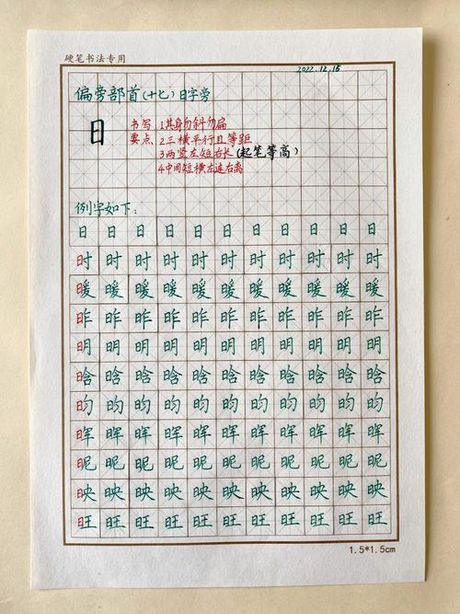 硬笔书法专用
2022.12.15
偏旁部首(十七)日字旁
日
书写 1其身勿斜勿扁
要点、2三横平行且等距
3两竖左短右长(起笔等高)
4中间短横左连右离
例字如下:
日 日 日 日 日 日 日 日 日 日 日
时 时 时 时 时 时 时 时 时 时 时
暖 暖 暖 暖 暖 暖 暖 暖 暖 暖 暖
昨 昨 昨 昨 昨 昨 昨 昨 昨 昨 昨
明 明 明 明 明 明 明 明 明 明 明
晗 晗 晗 晗 晗 晗 晗 晗 晗 晗 晗
昀 昀 昀 昀 昀 昀 昀 昀 昀 昀 昀
晖 晖 晖 晖 晖 晖 晖 晖 晖 晖 晖
昵 昵 昵 昵 昵 昵 昵 昵 昵 昵 昵
映 映 映 映 映 映 映 映 映 映 映
旺 旺 旺 旺 旺 旺 旺 旺 旺 旺 旺
1.5*1.5cm